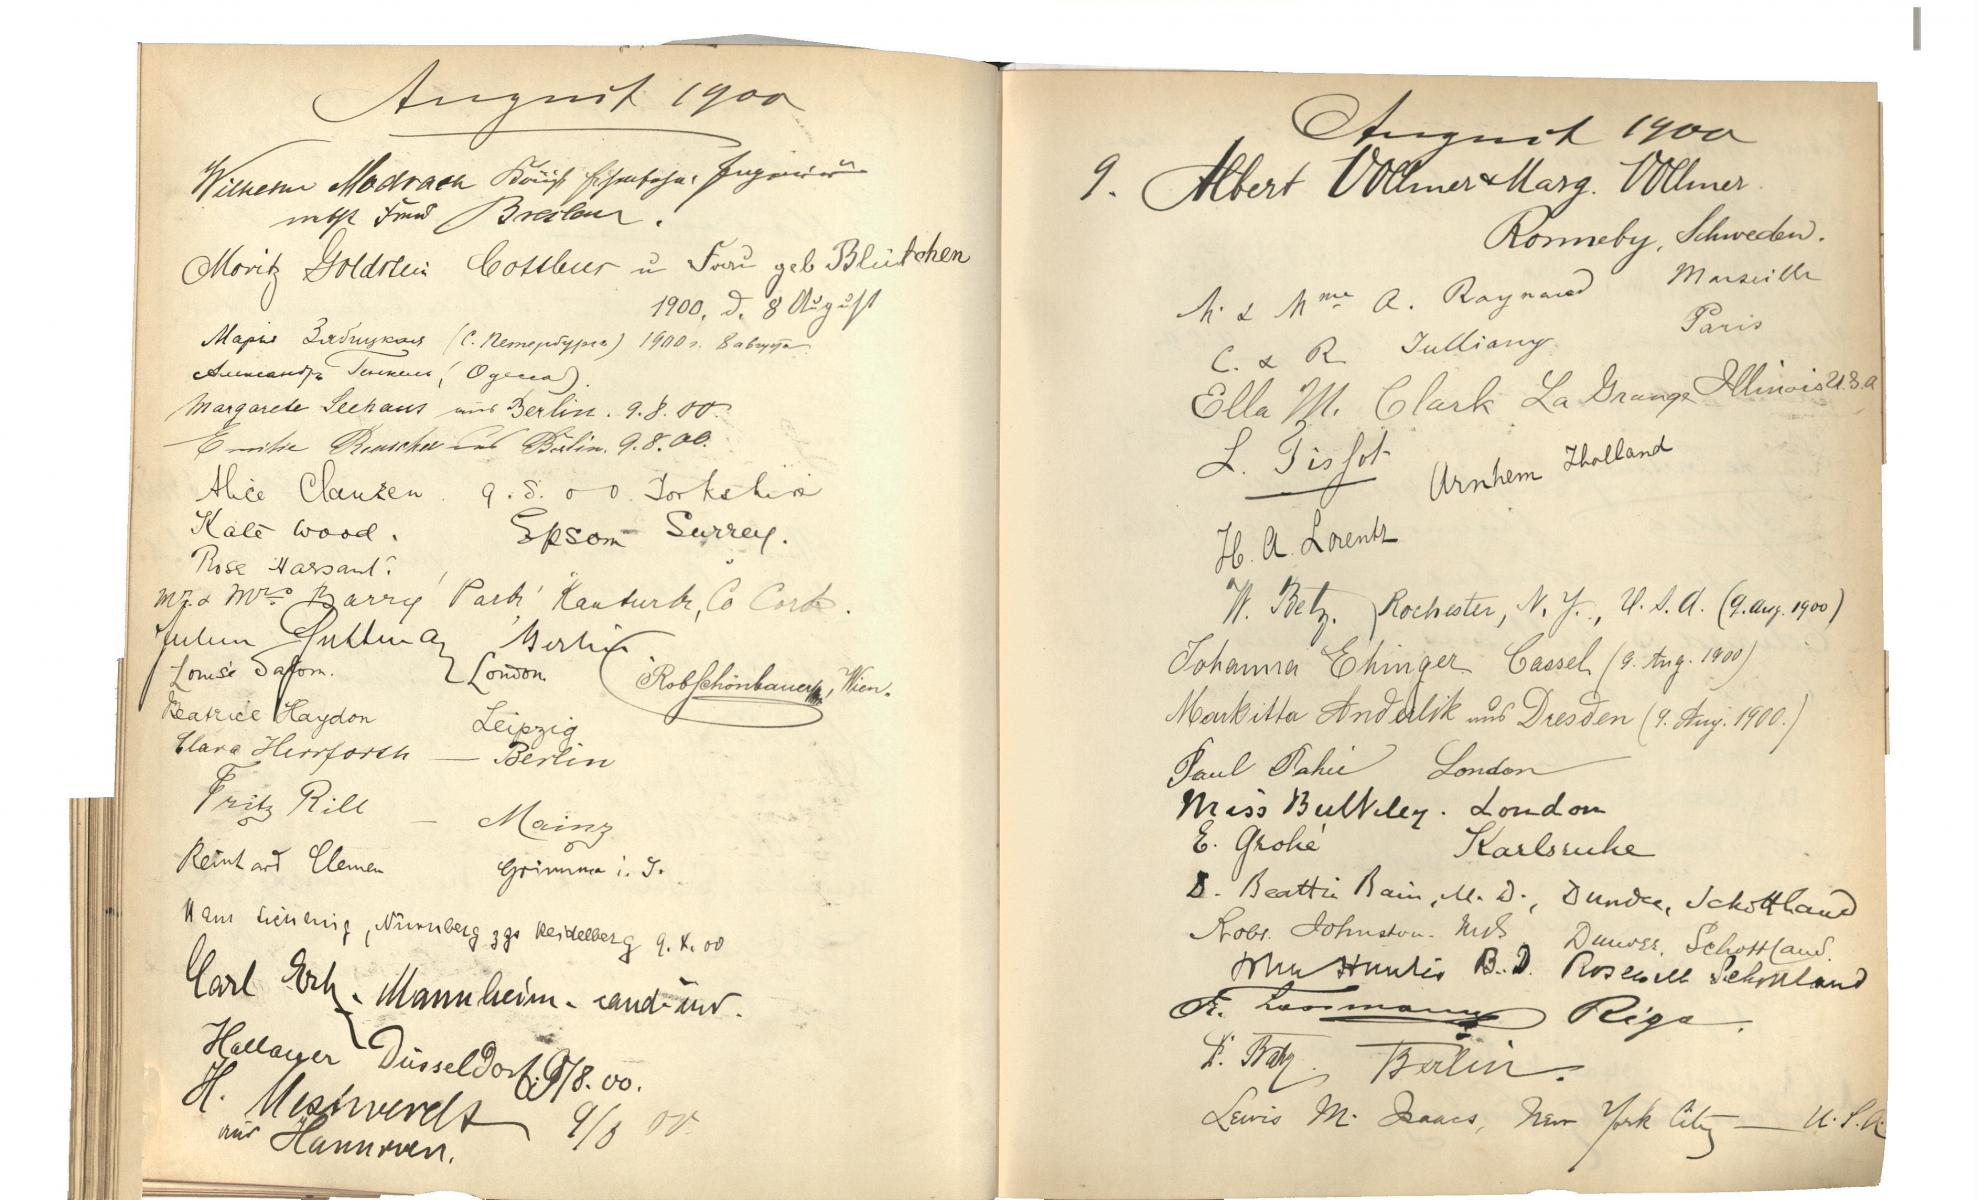 August 1900
Wilhelm Modrach Ingenieur
nebst Frau Breslau.
Moritz Goldstein Cottbus u Frau geb Blütchen
1900, d. 8 August
Марья Зябицкая (С. Петербургъ) 1900 г. 8 августа
Александръ (Одесса).
Margarete Seehaus aus Berlin. 9.8.00.
Emilie aus Berlin. 9.8.00.
Alice Clauzen. 9.8.00. Yorkshire
Kate Wood. Epsom Surrey.
Rose Harsant.
Mr. & Mrs Barry Park Kanturk, Co Cork.
Guttmann Berlin
Louise London
Rob Schönbauer, Wien.
Beatrice Haydon Leipzig
Clara Herrforth — Berlin
Fritz Rill — Mainz
Reinhard Clemen Grimma i. S.
Hans Nürnberg zzt Heidelberg 9.8.00
Carl Erh. Mannheim. cand.
Hallauer Düsseldorf. 9/8.00.
H. Meshwerdt 9/8 00.
aus Hannover.
August 1900
9. Albert Vollmer & Marg. Vollmer.
Ronneby, Schweden.
M. & Mme A. Raynaud Marseille
C. & R. Julliany Paris
Ella M. Clark La Grange Illinois U.S.A
L. Tissot
Arnhem Holland
H. A. Lorentz
W. Betz, Rochester, N.Y., U.S.A. (9. Aug. 1900)
Johanna Ehinger Cassel (9. Aug. 1900)
Markitta Anderlik aus Dresden (9. Aug. 1900.)
Paul London
Miss Bulkeley. London
E. Grohé Karlsruhe
D. Beattie Bain, M.D., Dundee, Schottland
Robt. Johnston. Schottland.
John Hunter B.D. Schottland
Fr. Loosmann Riga.
Berlin.
Lewis M. Isaacs, New York City — U.S.A.